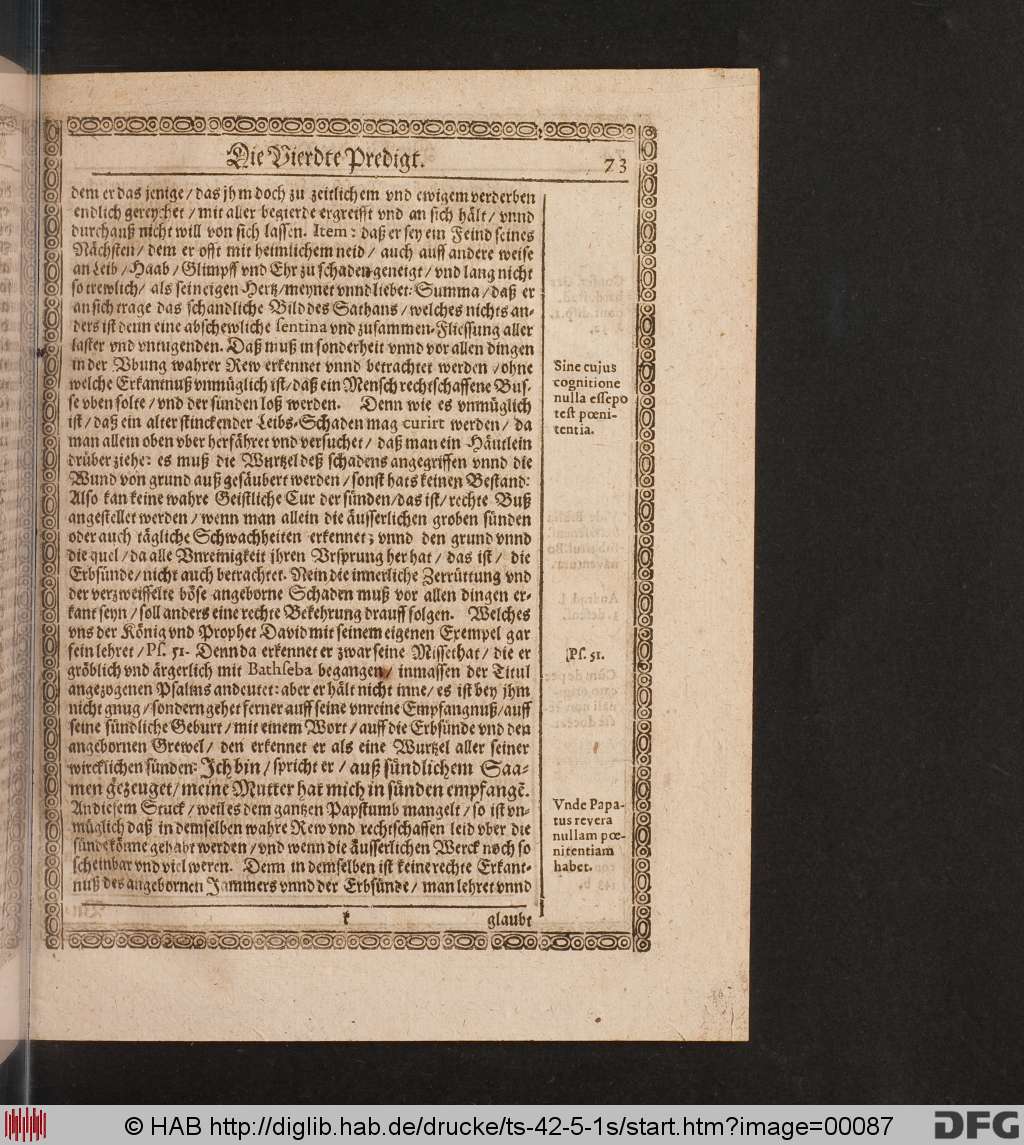 Die Vierdte Predigt.
73
dem er das jenige / das jhm doch zu zeitlichem vnd ewigem verderben
endlich gereychet / mit aller begierde ergreifft vnd an sich hält / vnnd
durchauß nicht will von sich lassen. Item: daß er sey ein Feind seines
Nächsten / dem er offt mit heimlichem neid / auch auff andere weise
an Leib / Haab / Glimpff vnd Ehr zu schaden geneigt / vnd lang nicht
so trewlich / als sein eigen Hertz / meynet vnnd liebet: Summa / daß er
an sich trage das schandliche Bild des Sathans / welches nichts an-
ders ist denn eine abschewliche sentina vnd zusammen-Fliessung aller
laster vnd vntugenden. Daß muß in sonderheit vnnd vor allen dingen
in der Vbung wahrer Rew erkennet vnnd betrachtet werden / ohne
welche Erkantnuß vnmüglich ist / daß ein Mensch rechtschaffene Bus-
se vben solte / vnd der sünden loß werden. Denn wie es vnmüglich
ist / daß ein alter stinckender Leibs-Schaden mag curirt werden / da
man allein oben vber herfähret vnd versuchet / daß man ein Häutlein
drüber ziehe: es muß die Wurtzel deß schadens angegriffen vnnd die
Wund von grund auß gesäubert werden / sonst hats keinen Bestand:
Also kan keine wahre Geistliche Cur der sünden / das ist / rechte Buß
angestellet werden / wenn man allein die äusserlichen groben sünden
oder auch tägliche Schwachheiten erkennet; vnnd den grund vnnd
die quel / da alle Vnreinigkeit jhren Vrsprung her hat / das ist / die
Erbsünde / nicht auch betrachtet. Nein die innerliche Zerrüttung vnd
der verzweiffelte böse angeborne Schaden muß vor allen dingen er-
kant seyn / soll anders eine rechte Bekehrung drauff folgen. Welches
vns der König vnd Prophet David mit seinem eigenen Exempel gar
fein lehret / Ps. 51. Denn da erkennet er zwar seine Missethat / die er
gröblich vnd ärgerlich mit Bathseba begangen / inmassen der Titul
angezogenen Psalms andeutet: aber er hält nicht inne / es ist bey jhm
nicht gnug / sondern gehet ferner auff seine vnreine Empfangnuß / auff
seine sündliche Geburt / mit einem Wort / auff die Erbsünde vnd den
angebornen Grewel / den erkennet er als eine Wurtzel aller seiner
wircklichen sünden: Ich bin / spricht er / auß sündlichem Saa-
men gezeuget / meine Mutter hat mich in sünden empfangē.
An diesem Stuck / weil es dem gantzen Papstumb mangelt / so ist vn-
müglich daß in demselben wahre Rew vnd rechtschaffen leid vber die
sünde könne gehabt werden / vnd wenn die äusserlichen Werck noch so
scheinbar vnd viel weren. Denn in demselben ist keine rechte Erkant-
nuß des angebornen Jammers vnnd der Erbsünde / man lehret vnnd
k
glaubt
Sine cujus
cognitione
nulla esse po
test pœni-
tentia.
Ps. 51.
Vnde Papa-
tus revera
nullam pœ-
nitentiam
habet.
© HAB http://diglib.hab.de/drucke/ts-42-5-1s/start.htm?image=00087
DFG